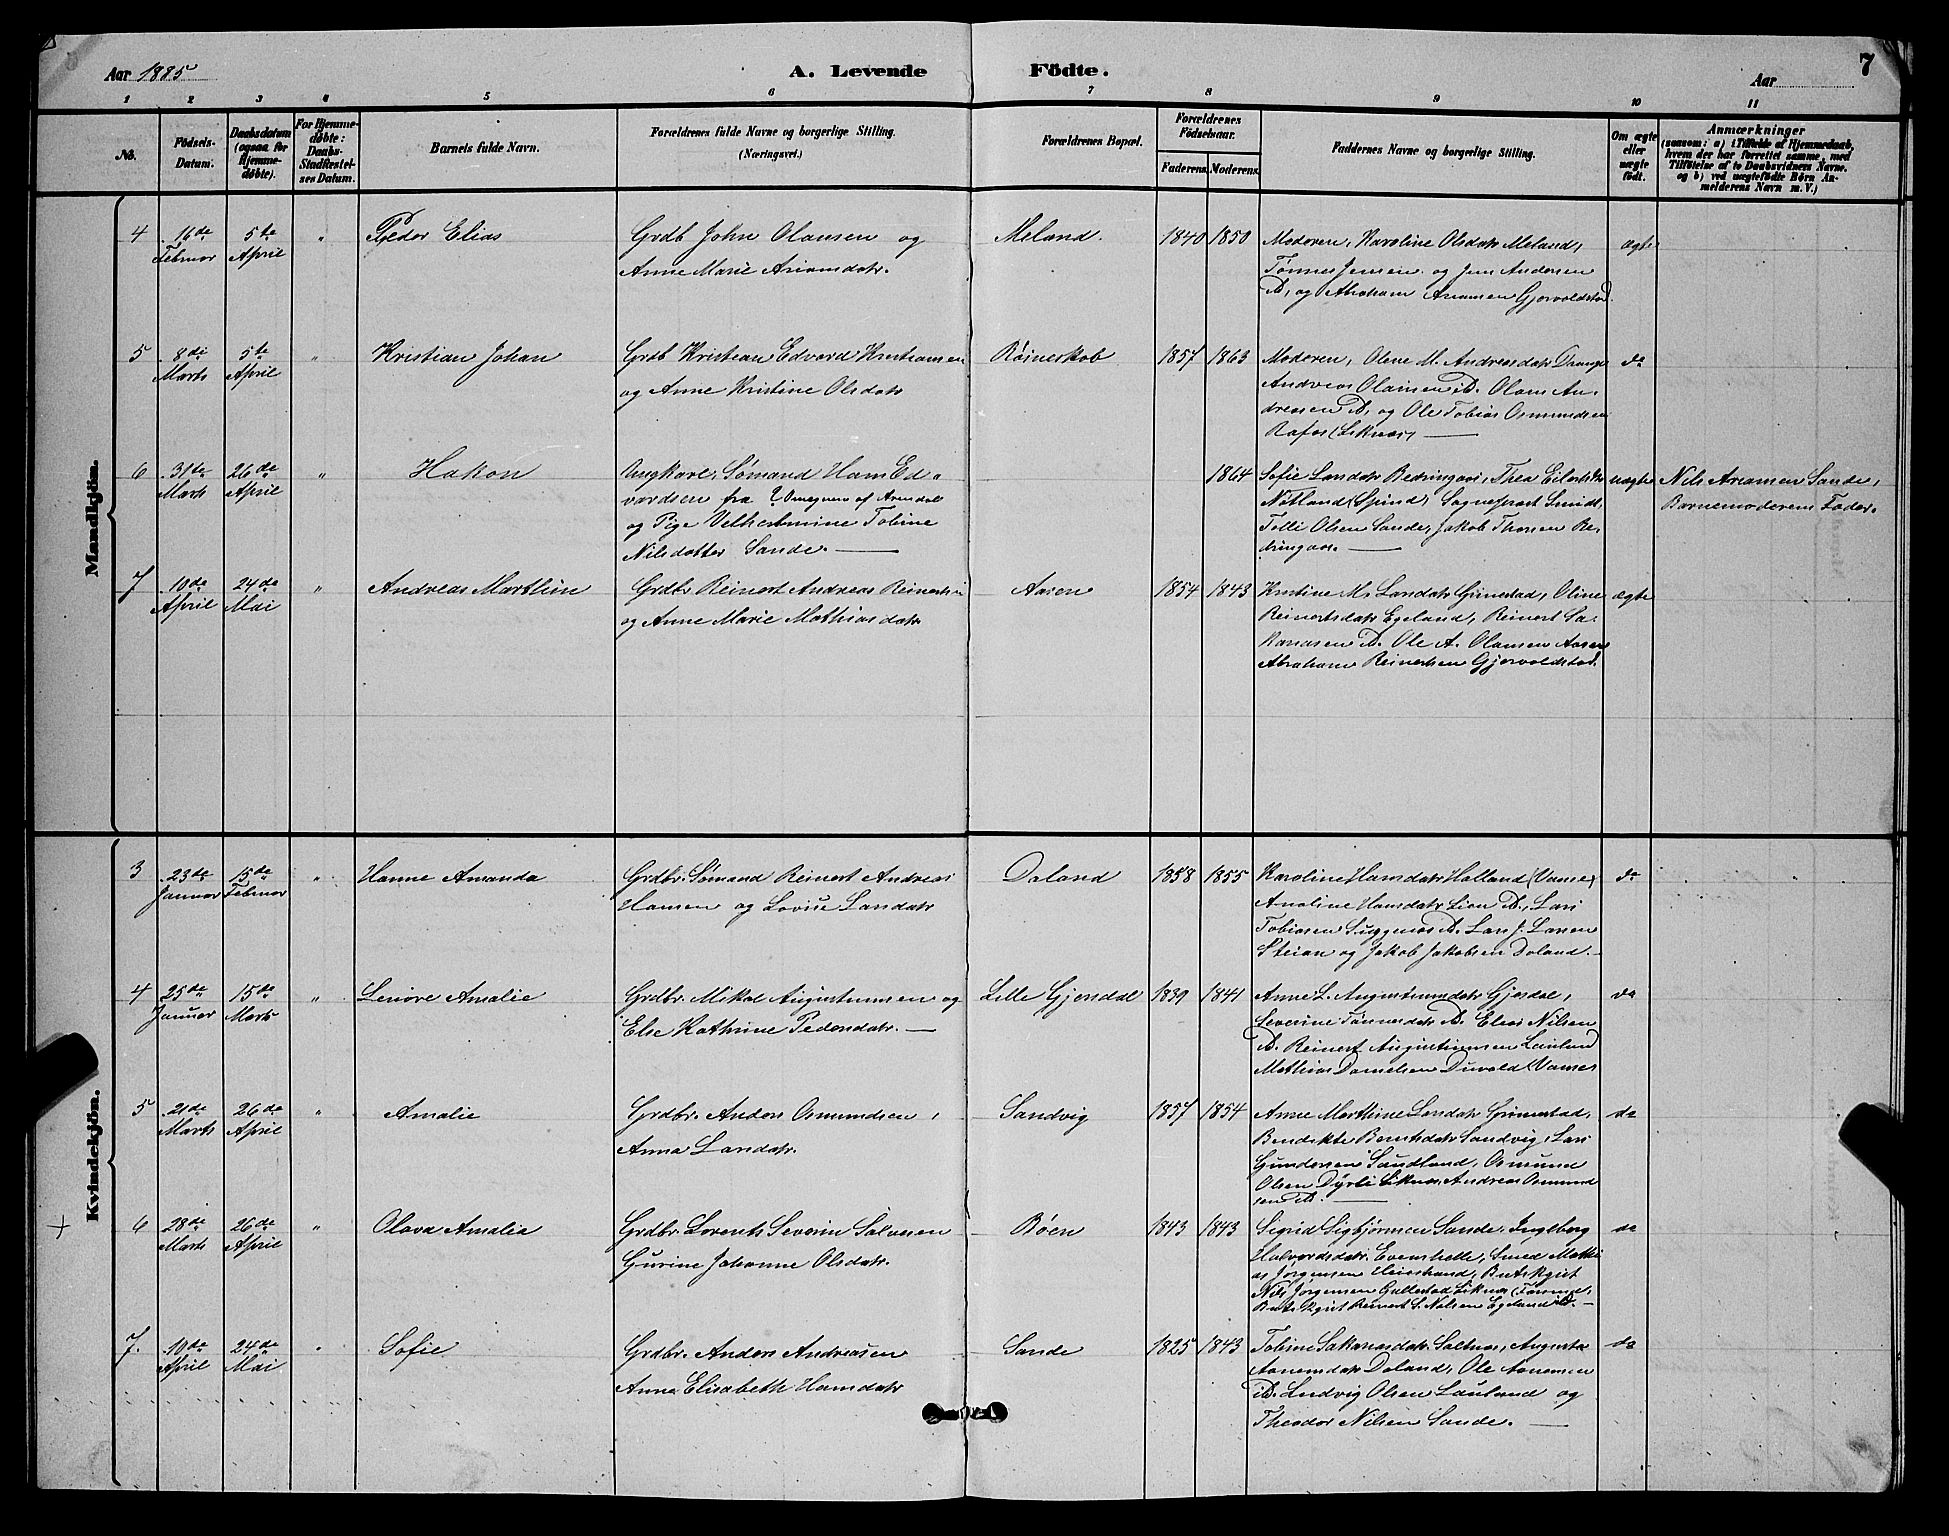 Aar 1885
A. Levende Födte.
Aar
7
1 2 3 4 5 6 7 8 9 10 11
No.
Födsels-Datum.
Daabsdatum (ogsaa for Hjemme-döbte).
For Hjemme-döbte: Daabs-Stadfæstel-ses Datum.
Barnets fulde Navn.
Forældrenes fulde Navne og borgerlige Stilling.
(Næringsvei.)
Forældrenes Bopæl.
Forældrenes Födselsaar.
Faderens. Moderens.
Faddernes Navne og borgerlige Stilling.
Om ægte eller uægte födt.
Anmærkninger
(saasom: a) i Tilfælde af Hjemmedaab, hvem der har forrettet samme, med Tilföielse af to Daabsvidners Navne. og b) ved uægtefödte Börn An-melderens Navn m. V.)
Mandkjön.
4 16de Februar 5te April " Peder Elias
Grdb John Olausen og
Anne Marie Ariamsdatr.
Meland. 1840 1850
Moderen, Karoline Olsdatr Meland,
Tønnes Jensen og Jens Andersen
D, og Abraham Ariansen Gjervoldstad.
ægte
5 8de Marts 5te April " Kristian Johan
Grdb Kristian Edvard Kristiansen
og Anne Kristine Olsdatr
Røineskob 1857 1863
Moderen, Olene M. Andreasdatr Drange
Andreas Olausen D. Olaus An-
dreassen D, og Ole Tobias Osmundsen
Rafos (Liknæs)
do
6 31te Marts 26de April " Hakon
Ungkarl, Sømand Hans Ed-
vardsen fra Omegnen af Arendal
og Pige Velhelmine Tobine
Nilsdotter Sande.
1864
Sofie Larsdatr Bedringaas, Thea Eilertsdtr
Nitland (Spind), Sogneprest Smidt,
Tolli Olsen Sande, Jakob Thorsen Be-
dringaas.
uægte
Nils Ariansen Sande,
Barnemoderens Fader.
7 10de April 24de Mai " Andreas Marthin
Grdbr Reinert Andreas Reinertsen
og Anne Marie Mathiasdatr
Aasen 1854 1843
Kristine M. Larsdatr Grimestad, Oline
Reinertsdatr Egeland, Reinert Sa-
kariasen D. Ole A. Olausen Aasen
Abraham Reinertsen Gjervoldstad.
ægte
Kvindekjön.
3 23de Januar 15de Februar " Hanne Amanda
Grdbr. Sømand Reinert Andreas
Hansen og Lovise Larsdatr
Daland 1858 1855
Karoline Hansdatr Holland (Vanse)
Anoline Hansdatr Lien D., Lars
Tobiasen D. Lars J. Larsen
og Jakob Jakobsen Daland.
do
4 25de Januar 15de Marts " Lenore Amalie
Grdbr. Mikal Augustinusen og
Else Kathrine Pedersdatr.
Lille Gjersdal 1839 1841
Anne L. Augustinusdatr Gjersdal,
Severine Tønnesdatr D. Elias Nilsen
D. Reinert Augustinusen Lauland
Mathias Danielsen Duvold (Vanse)
do
5 21de Marts 26de April " Amalie
Grdbr. Anders Osmundsen,
Anna Larsdatr.
Sandvig 1857 1854
Anne Marthine Larsdatr Grimestad,
Bendikte Berntsdatr Sandvig, Lars
Gundersen Sandland, Osmund
Olsen Dyrli Liknæs, Andreas Osmund
sen D.
do
+ 6 28de Marts 26de April " Olava Amalia
Grdbr. Lorents Severin Salvesen
Gurine Johanne Olsdatr.
Røen 1843 1843
Sigrid Sigbjørnsen Sande, Ingeborg
Halvordsdatr. Evenshelle, Smed Mathi
as Jørgensen Heistrand,
Nils Jørgensen Gullestad Liknæs
Reinert S. Nilsen Egeland D.
do
7. 10de April 24de Mai " Sofie
Grdbr. Anders Andreasen
Anna Elisabeth Hansdatr
Sande 1825 1843
Tobine Sakariasdatr. Saltnæs, Augusta
Aanensdatr Daland, Ole Aanensen
D. Ludvig Olsen Lauland og
Theodor Nilsen Sande.
do